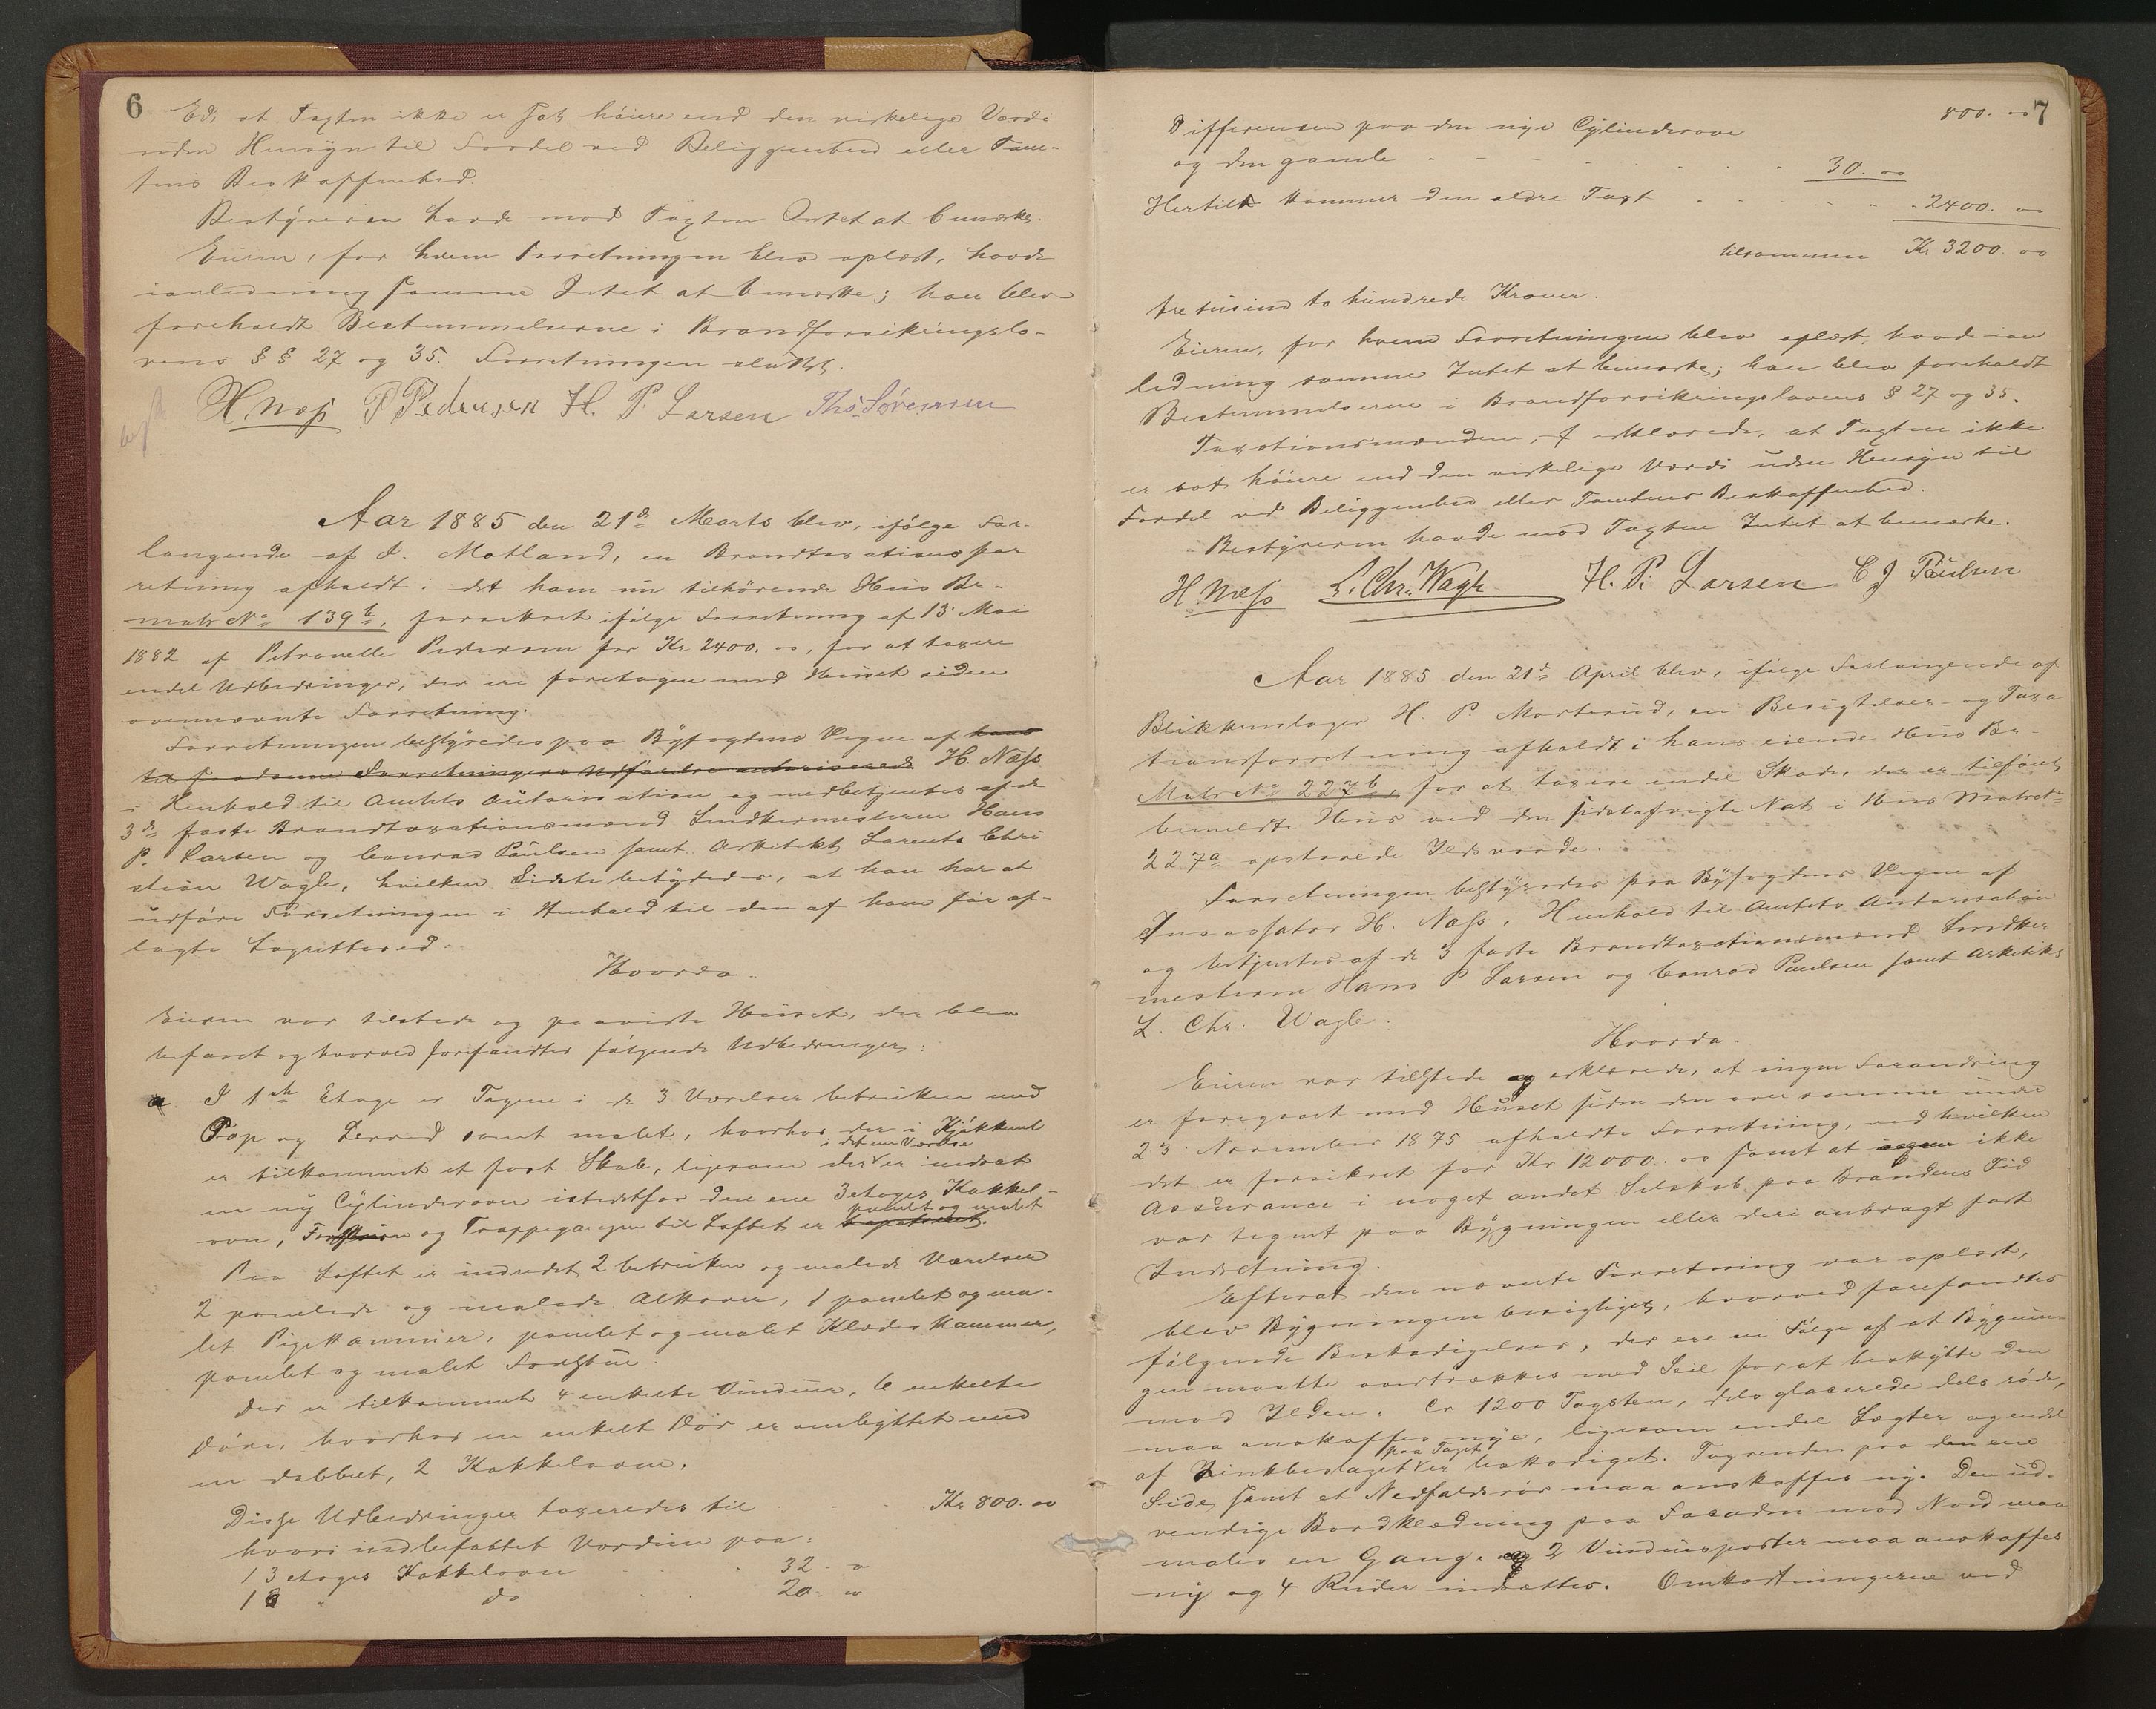 6
Ed, at Taxten ikke er sat høiere end den virkelige Værdi
uden Hensyn til Fordel ved Beliggenhed eller Tom-
tens Beskaffenhed.
Bestyreren havde mod Taxten Intet at bemærke.
Eieren, for hvem Forretningen blev oplæst, havde
ianledning samme Intet at bemærke; han blev
foreholdt Bestemmelserne i Brandforsikringslo-
vens §§ 27 og 35. Forretningen sluttet.
H. Næss P Pedersen H. P. Larsen Ths. Sørensen
Aar 1885 den 21de Marts blev, ifølge For-
langende af J. Motland, en Brandtaxationsfor
retning afholdt i det ham nu tilhørende Hus Br-
matr No 139b, forsikret ifølge Forretning af 13 Mai
1882 af Petronelle Pedersen for Kr 2400.00, for at taxere
endel Udbedringer, der ere foretagne med Huset siden
ovennævnte Forretning.
Forretningen bestyredes paa Byfogdens Vegne af hans
til saadanne Forretningers Udførelse autoriserede H. Næss
i Henhold til Amtets Autorisation og medbetjentes af de
3de faste Brandtaxationsmænd Smedkermesterne Hans
P. Larsen og Conrad Paulsen samt Arkitekt Lorentz Chri
stian Wagle, hvilken Sidste betydedes, at han har at
udføre Forretningen i Henhold til den af ham før af-
lagte Lagrettesed.
Hvorda.
Eieren var tilstede og paaviste Huset, der blev
befaret og hvorved forefandtes følgende Udbedringer:
a I 1ste Etage er Tagene i de 3 Værelser betrukken med
Pap og Lerred samt malet, hvorhos der i Kjøkkenet
er tilkommet et fast Skab, ligesom der i det ene Værelse er indsat
en ny Cylinderovn istedetfor den ene 3etages Kakkel-
ovn, Forstuen og Trappegangen til Loftet er panelet og malet betapetseret.
Paa Loftet er indredet 2 betrukken og malede Værelser
2 panelede og malede Alkover, 1 panelet og ma-
let Pigekammer, panelet og malet Klædeskammer,
panelet og malet Forstue.
Der er tilkommet 4 enkelte Vinduer, 6 enkelte
Døre, hvorhos en enkelt Dør er ombyttet med
en dobbelt, 2 Kakkelovne.
Disse Udbedringer taxeredes til Kr 800.00
hvori indbefattet Værdien paa:
1 3 etages Kakkelovn 32. 0
1 " do 20. 00
7
800. 00
Differensen paa den nye Cylinderovn
og den gamle 30. 00
Hertil kommer den ældre Taxt 2400. 00
tilsammen Kr 3200. 00
tre tusind to hundrede Kroner.
Eieren, for hvem Forretningen blev oplæst, havde ian
ledning samme Intet at bemærke; han blev foreholdt
Bestemmelserne i Brandforsikringslovens § 27 og 35.
Taxationsmændene, erklærede, at Taxten ikke
er sat høiere end den virkelige Værdi uden Hensyn til
Fordel ved Beliggenhed eller Tomtens Beskaffenhed.
Bestyreren havde mod Taxten Intet at bemærke.
H. Næss L. Chr. Wagle H. P. Larsen C J Paulsen
Aar 1885 den 21de April blev, ifølge Forlangende af
Blikkenslager H. P. Morterud, en Besigtelses- og Taxa
tionsforretning afholdt i hans eiende Hus Br-
Matr No 227b, for at taxere endel Skade, der er tilføiet
bemeldte Hus ved den sidstafvigte Nat i Hus Matr
227a opstaaede Ildsvaade.
Forretningen bestyredes paa Byfogdens Vegne af
Inkassator H. Næss, i Henhold til Amtets Autorisation
og betjentes af de 3 faste Brandtaxationsmænd Smedker
mesterne Hans P. Larsen og Conrad Paulsen samt Arkitekt
L. Chr. Wagle.
Hvorda.
Eieren var tilstede og erklærede, at ingen Forandring
er foregaaet med Huset siden den over samme under
23 November 1875 afholdte Forretning, ved hvilken
det er forsikret for Kr 12000.00 samt at ikke
Assurance i noget andet Selskab paa Brandens Tid
var tegnet paa Bygningen eller deri anbragt fast
Indretning.
Efterat den nævnte Forretning var oplæst,
blev Bygningen besigtiget, hvorved forefandtes
følgende Beskadigelser, der ere en Følge af at Bygnin-
gen maatte overtrækkes med Seil for at beskytte den
mod Ilden. Cr 1200 Tagsten, dels glacerede dels røde,
maa anskaffes nye, ligesom endel Lægter og endel
af Zinkbeslaget paa Taget er beskadiget. Tagrenden paa den ene
Side samt et Nedfaldsrør maa anskaffes ny. Den ud-
vendige Bordklædning paa Facaden mod Nord maa
males en Gang. 2 Vinduesposter maa anskaffes
ny og 4 Ruder indsættes. Omkostningerne ved